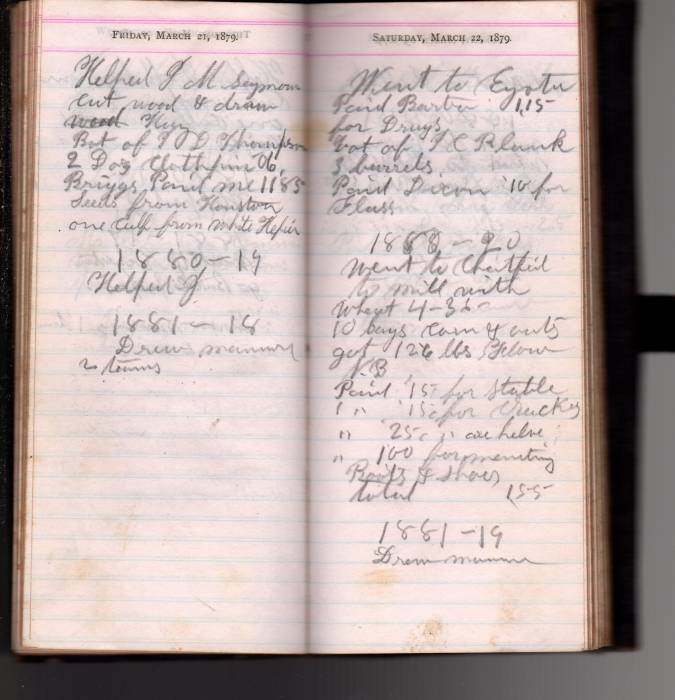 FRIDAY, MARCH 21, 1879.
Helped J M Seymour
cut wood & draw
wood
Bot of J D Thompson
2 Doz Clothpins 06
Briggs Paid me 1185
Seeds from Houston
one calf from white Hefir
1880-19
Helped J
1881-18
Drew manure
2 teams
SATURDAY, MARCH 22, 1879.
Went to
Paid Barber 1,15
for Drugs
Bot of J C Plank
3 barrels
Paid Dixon 10 for
Flass
1880-20
Went to
to mill with
Wheat 4-35
10 bags corn & outs
got 126 lbs Flour
N B
Paid 15 for Stable
" " 15 c for Crackers
" 25 c " axe helve
" 100 for mending
Boots & Shoes
total 155
1881-19
Drew manure